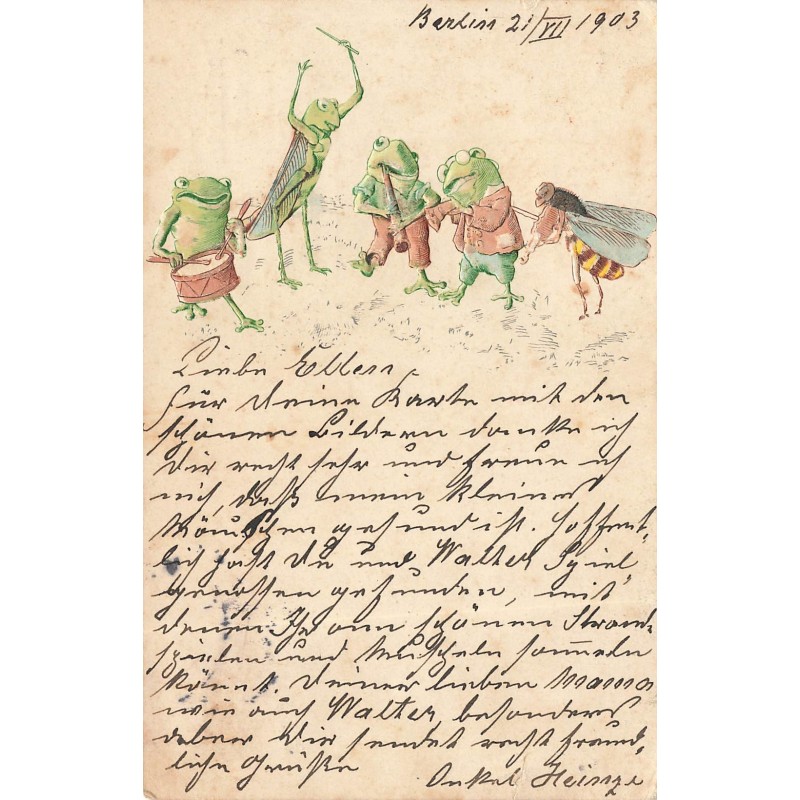 Berlin 21/VII 1903
Liebe Ellen,
für Deine Karte mit den
schönen Bildern danke ich
Dir recht sehr und freue ich
mich, daß mein kleines
Mäuschen gesund ist. Hoffent-
lich hast Du und Walter Spiel
genossen gefunden, mit
denen Ihr am schönen Strand
spielen und Muscheln sammeln
könnt. Deiner lieben Mama
wie auch Walter, besonders
aber Dir sendet recht freund-
liche Grüße
Onkel Heinze